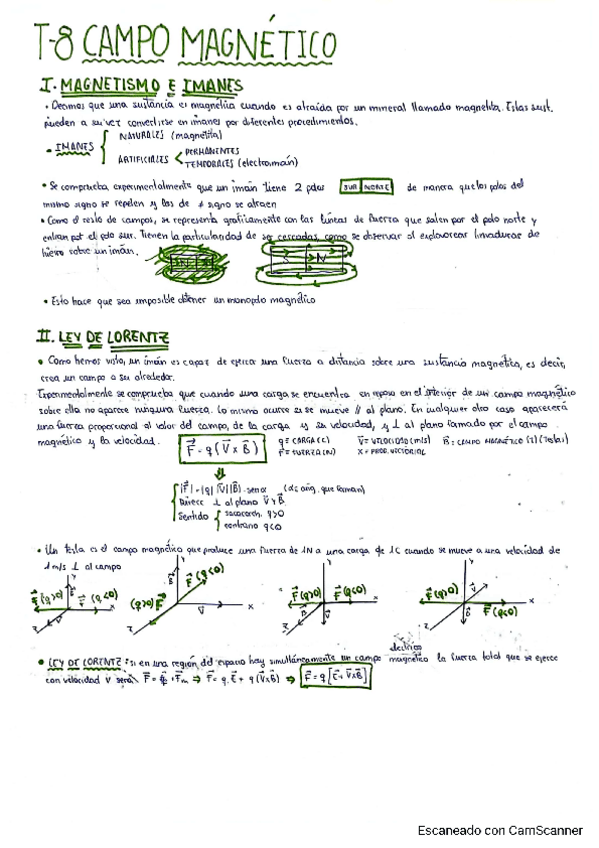 T-8 CAMPO MAGNÉTICO
I. MAGNETISMO E IMANES
• Decimos que una sustancia es magnética cuando es atraída por un mineral llamado magnetita. Estas sust.
pueden a su vez convertirse en imanes por diferentes procedimientos.
• IMANES
NATURALES (magnetita)
ARTIFICIALES
PERMANENTES
TEMPORALES (electroimán)
• Se comprueba experimentalmente que un imán tiene 2 polos SUR NORTE de manera que los polos del
mismo signo se repelen y los de ≠ signo se atraen
• Como el resto de campos, se representa gráficamente con las líneas de fuerza que salen por el polo norte y
entran por el polo sur. Tienen la particularidad de ser cerradas, como se observar al espolvorear limaduras de
hierro sobre un imán.
S N
• Esto hace que sea imposible obtener un monopolo magnético
II. LEY DE LORENTZ
• Como hemos visto, un imán es capaz de ejercer una fuerza a distancia sobre una sustancia magnética, es decir,
crea un campo a su alrededor.
Experimentalmente se comprueba que cuando una carga se encuentra en reposo en el interior de un campo magnético
sobre ella no aparece ninguna fuerza. Lo mismo ocurre si se mueve // al plano. En cualquier otro caso aparecerá
una fuerza proporcional al valor del campo, de la carga y su velocidad, y ⊥ al plano formado por el campo
magnético y la velocidad. F⃗ = q(V⃗ x B⃗) q = CARGA (C) V⃗ = VELOCIDAD (m/s) B = CAMPO MAGNÉTICO (T) (Teslas)
F = FUERZA (N) X = PROD. VECTORIAL
|F⃗| = |q| |V⃗| |B⃗| · senα (α = áng. que forman)
Direcc ⊥ al plano V⃗ y B⃗
Sentido
sacacorch. q>0
contrario q<0
• Un tesla es el campo magnético que produce una fuerza de 1N a una carga de 1C cuando se mueve a una velocidad de
1m/s ⊥ al campo
F⃗ (q>0) F⃗ (q<0) B⃗ V⃗ X Z
(q>0) F⃗ F⃗ (q<0) B⃗ V⃗ X Z
F⃗ (q>0) F⃗ (q<0) B⃗ V⃗ X Z
F⃗ (q>0) F⃗ (q<0) B⃗ V⃗ X Z
eléctrico
• LEY DE LORENTZ: si en una región del espacio hay simultáneamente un campo magnético la fuerza total que se ejerce
con velocidad v será: F⃗ = + F⃗m ⇒ F⃗ = q · E⃗ + q (V⃗xB⃗) ⇒ F⃗ = q [E⃗ + V⃗xB⃗]
Escaneado con CamScanner